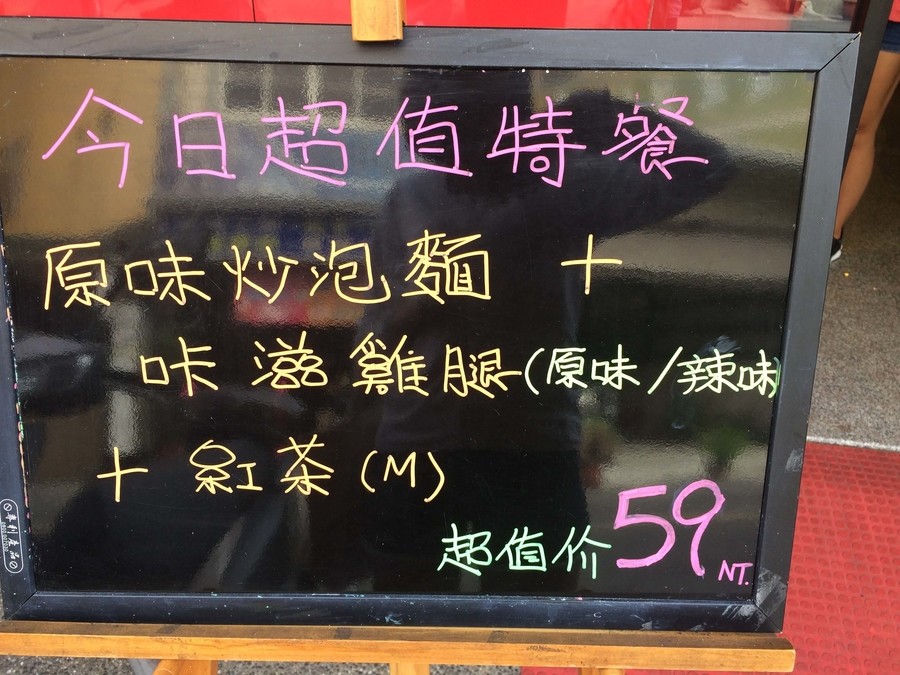 今日超值特餐
原味炒泡麵 +
咔滋雞腿(原味/辣味)
+ 紅茶(M)
超值价59 NT.